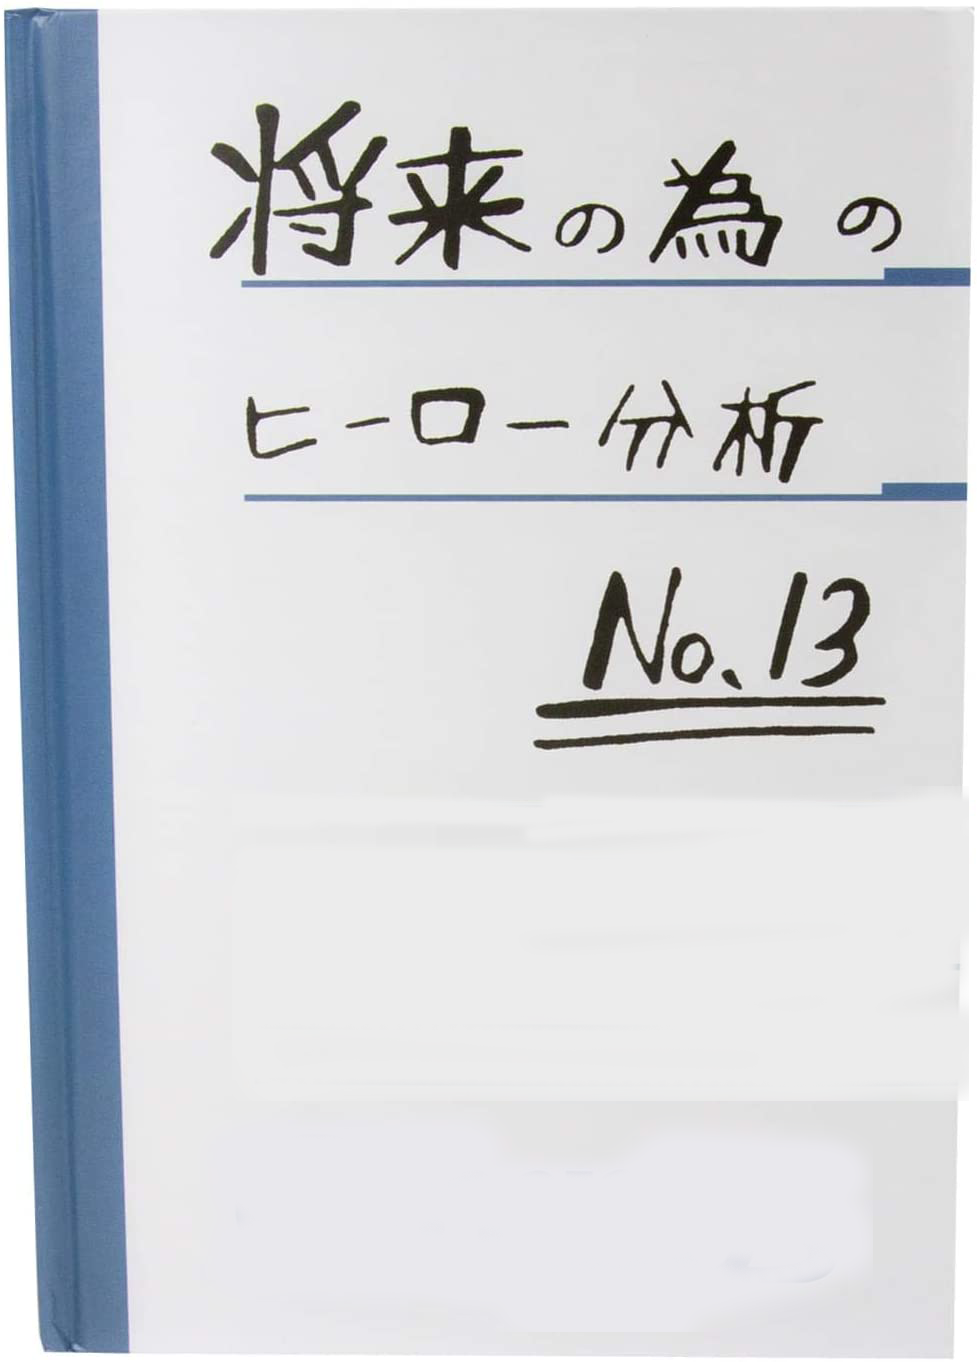 将来の為の
ヒーロー分析
No.13